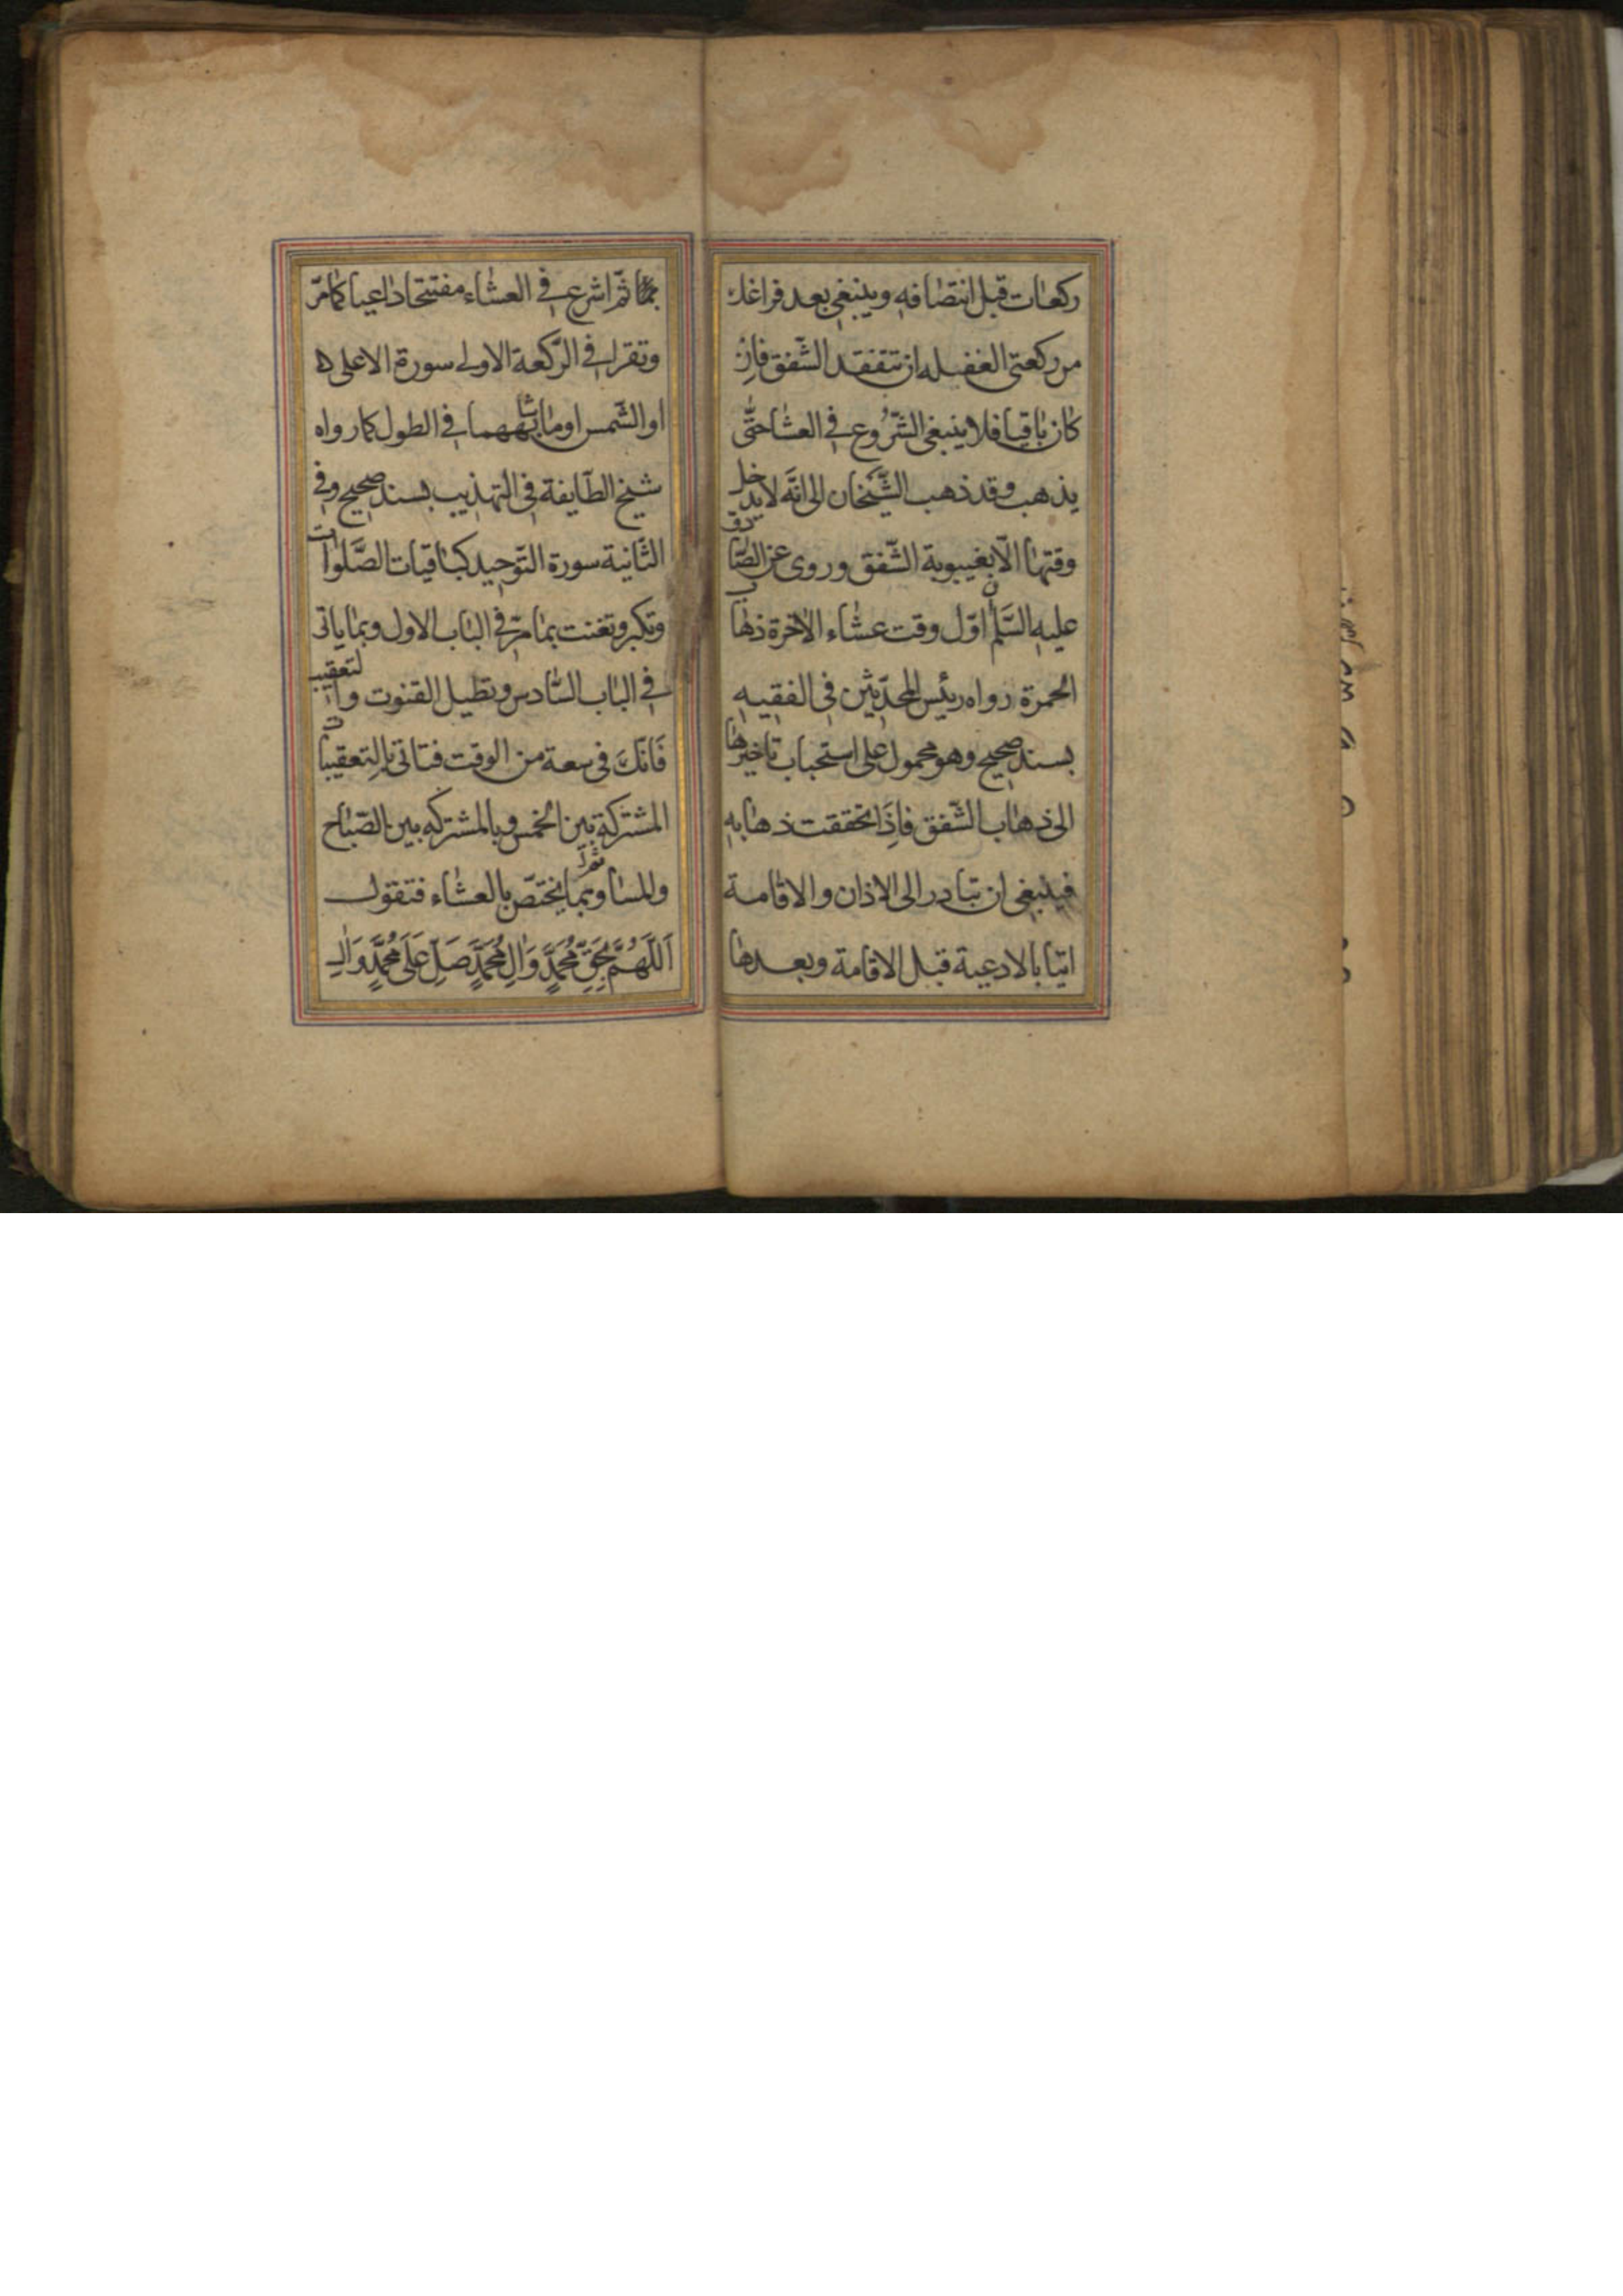 ركعات قبل انتصافه وينبغي بعد فراغك
من ركعتي الغفيله ان تتفقد الشفق فان
كان باقيا فلا ينبغي الشّروع في العشا حتّى
يذهب وقد ذهب الشّيخان الى انّه لا يدخل
وقتها الّا بغيبوبة الشّفق وروى عن الصّادق
عليه السّلم ان اوّل وقت عشاء الآخرة ذهاب
الحمرة رواه رئيس المحدّثين في الفقيه
بسند صحيح وهو محمول على استحباب تاخيرها
الى ذهاب الشّفق فاِذا تحققت ذهابه
فينبغي ان تبادر الى الاذان والاقامة
اتيا بالادعية قبل الاقامة وبعدها
ثمّ اشرع في العشاء مفتتحا داعيا كما مرّ
وتقرا في الرّكعة الاولى سورة الاعلى
او الشّمس او ما شابههما في الطول كما رواه
شيخ الطّايفة في التهذيب بسند صحيح وفي
الثّانية سورة التّوحيد كباقيات الصّلوات
وتكبر وتقنت بما مرّ في الباب الاول وبما ياتى
في الباب السّادس وتطيل القنوت والتعقيب
فَانّكَ فى سعة من الوقت فتاتى بالتعقيبات
المشتركة بين الخمس وبالمشتركه بين الصّباح
والمسا ثمّ بما يختصّ بالعشاء فتقول
اَللّهُمَّ بِحَقِّ مُحَمَّدٍ وَالِ مُحَمَّدٍ صَلِّ عَلى مُحَمَّدٍ وَالِ